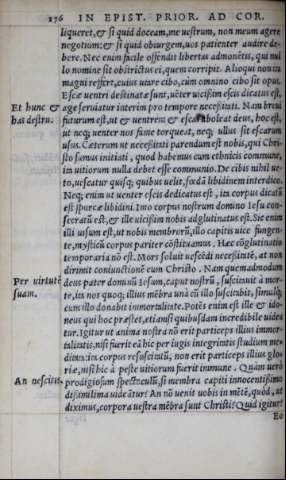 276 IN EPIST. PRIOR. AD COR.
liqueret, & si quid doceam, me vestrum, non meum agere
negotium: & si quid obiurgem, uos patienter audire de-
bere. Nec enim facile offendit libertas admonētis, qui nul
lo nomine sit obstrictus ei, quem corripit. Alioqui non ita
magni refert, cuius uiure cibo, cùm omnino cibo sit opus.
Escæ uentri destinatæ sunt, uēter uicissim escis dicatus est,
Et hunc & age seruiatur interim pro tempore necessitati. Nam breui
has destru. futurum est, ut & uentrem & escas aboleat deus, hoc est,
ut neq; uenter nos fame torqueat, neq; ullus sit escarum
usus. Cæterum ut necessitati parendum est nobis, qui Chri-
sto sumus initiati, quod habemus cum ethnicis commune,
in uitiorum nulla debet esse communio. De cibis nihil ue-
to, uescatur quisq; quibus uelit, fœdā libidinem interdico.
Neq; enim ut uenter escis dedicatus est, ita corpus dicatū
est spurcæ libidini. Imò corpus nostrum domino Iesu con-
secratū est, & ille uicissim nobis adglutinatus est. Sic enim
illi uisum est, ut nobis membrorū, illo capitis uice fungen-
te, mysticū corpus pariter cōstituamus. Hæc cōglutinatio
temporaria nō est. Mors soluit uescēdi necessitatē, at non
dirimit coniunctionē cum Christo. Nam quemadmodum
Per uirtutē deus pater dominū Iesum, caput nostrū, suscitauit à mor-
suam. te, ita nos quoq; illius mēbra unà cū illo suscitabit, simulq;
cum illo donabit immortalitate. Potēs enim est ille & ido-
neus qui hoc præstet, etiamsi quibusdam incredibile uidea
tur. Igitur ut anima nostra nō erit particeps illius immor-
talitatis, nisi fuerit eā hic per iugis integritatis studium me-
ditata: ita corpus resuscitatū, non erit particeps illius glo-
riæ, nisi hic à peste uitiorum fuerit immune. Quàm uerò
An nescitis. prodigiosum spectaculū, si membra capiti innocentissimo
dissimilima uideātur! An nō uenit uobis in mētē, quòd, ut
diximus, corpora uestra mēbra sunt Christi? Quid igitur?
Eo